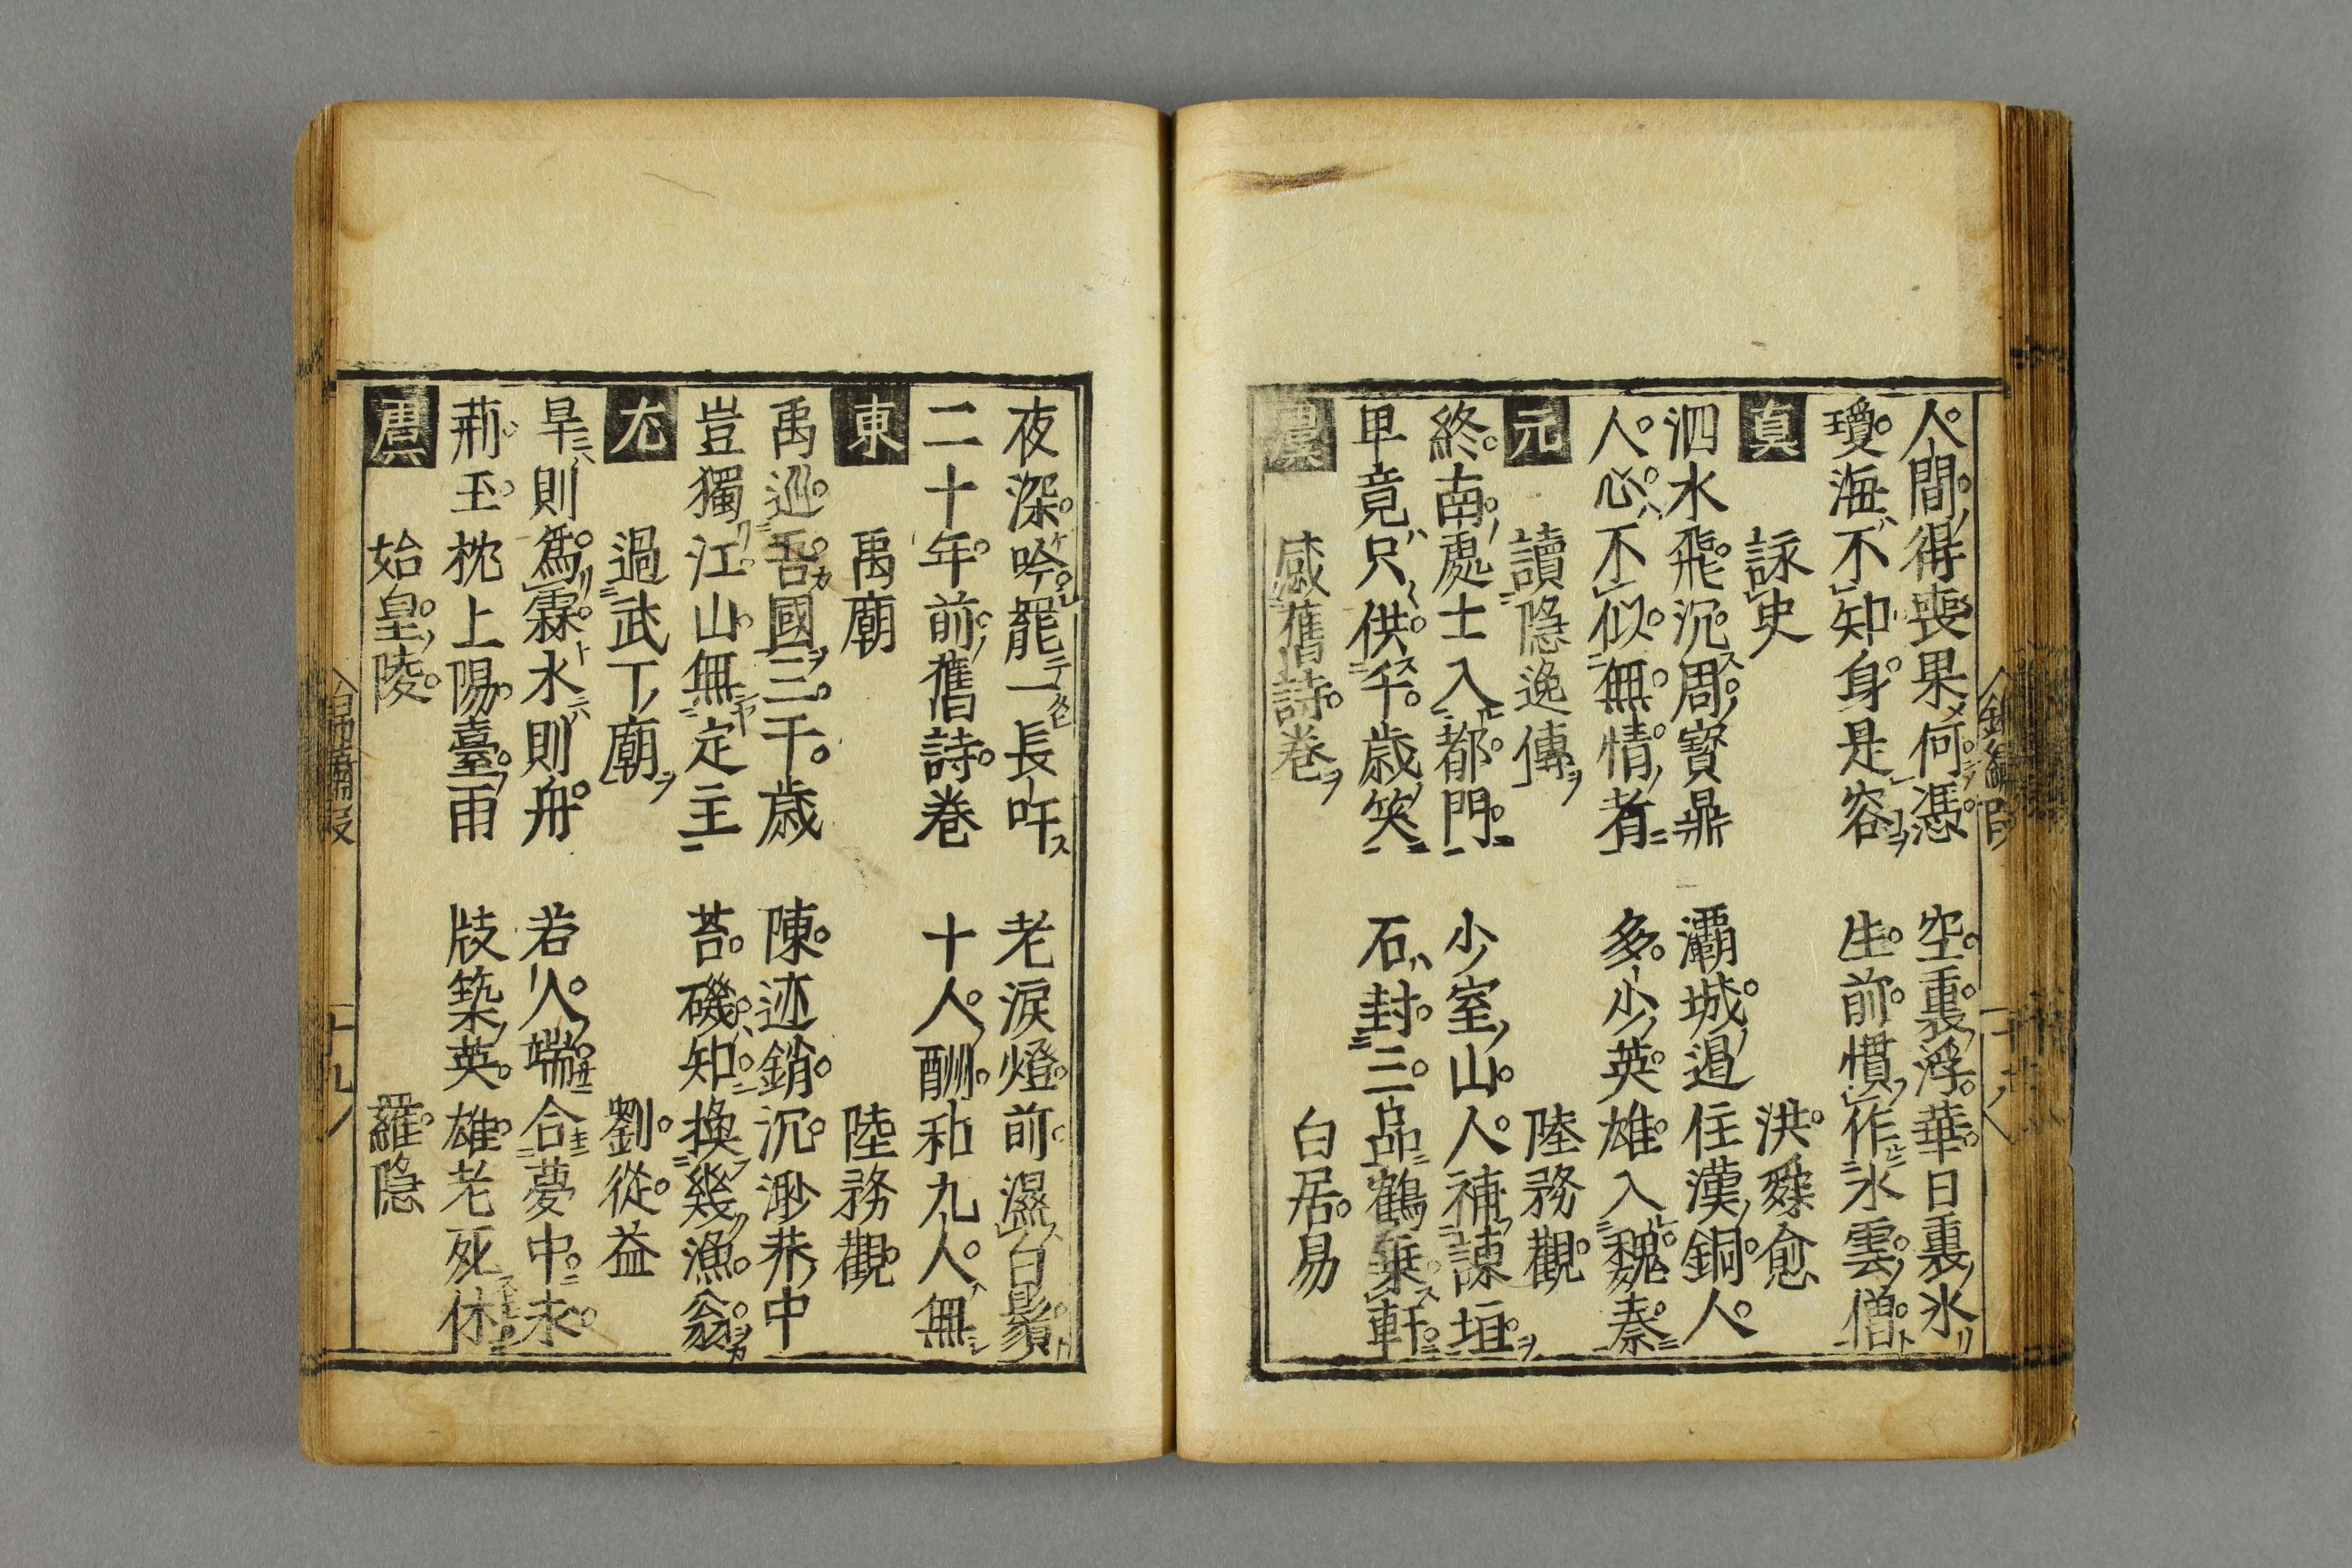 人間得喪果何憑 空裏浮華日裏氷
瓊海不知身是容 生前慣作氷雲僧
真 詠史 洪舜愈
泗水飛沉周寳鼎 灞城過住漢銅人
人心不似無情者 多少英雄入魏秦
元 讀隱逸傳 陸務觀
終南處士入都門 少室山人補諫垣
畢竟只供千歳笑 石封三品鶴乗軒
真 感舊詩巻 白居易
夜深吟罷一長吁 老淚燈前濕白鬚
二十年前舊詩巻 十人酬和九人無
東 禹廟 陸務觀
禹巡吾國三千歳 陳迹銷沉渺莽中
豈獨江山無定主 苔磯知換幾漁翁
尤 過武丁廟 劉從益
旱則爲霖水則舟 若人端合夢中求
荊玉枕上陽臺雨 版築英雄老死休
真 始皇陵 羅隐